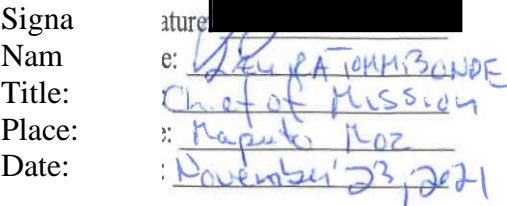 Signa ature:
Nam e: LAURA TOMM-BONDE
Title: Chief of Mission
Place: : Maputo Moz
Date: : November 23, 2021